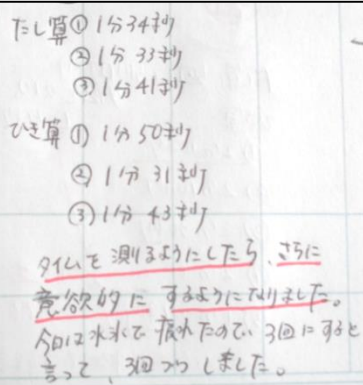 たし算 ① 1分34秒
② 1分33秒
③ 1分41秒
ひき算 ① 1分50秒
② 1分31秒
③ 1分43秒
タイムを測るようにしたら、さらに
意欲的にするようになりました。
今日は水泳で疲れたので、3回にすると
言って、3回づつしました。